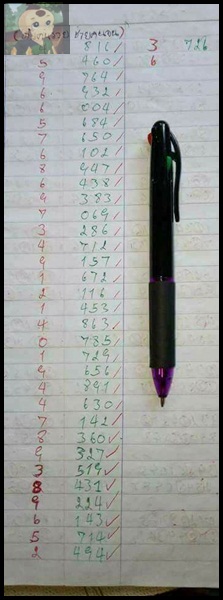 816 3 726
5 460 6
9 764
6 932
6 004
5 684
7 650
6 102
8 947
6 438
9 383
7 069
3 286
4 712
9 157
1 672
2 116
1 453
4 863
0 785
1 729
9 656
4 891
4 630
7 142
8 360
9 327
3 519
8 431
9 224
6 143
5 714
2 494